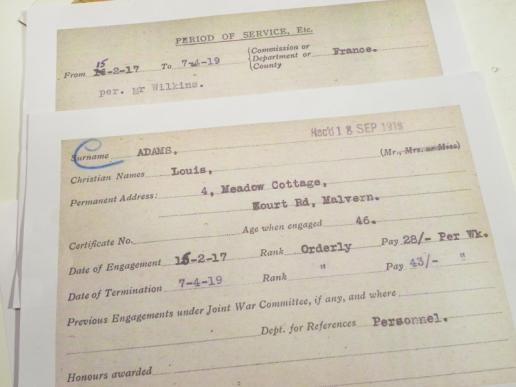 PERIOD OF SERVICE, Etc.
From 15-2-17 To 7-4-19 (Commission or Department or County France.
per. Mr Wilkins.
C
Rec'd 18 SEP 1918
Surname ADAMS, (Mr., Mrs. or Miss)
Christian Names Louis,
Permanent Address: 4, Meadow Cottage,
Court Rd, Malvern.
Certificate No. Age when engaged 46.
Date of Engagement 15-2-17 Rank Orderly Pay 28/- Per Wk.
Date of Termination 7-4-19 Rank " Pay 43/- "
Previous Engagements under Joint War Committee, if any, and where
Dept. for References Personnel.
Honours awarded